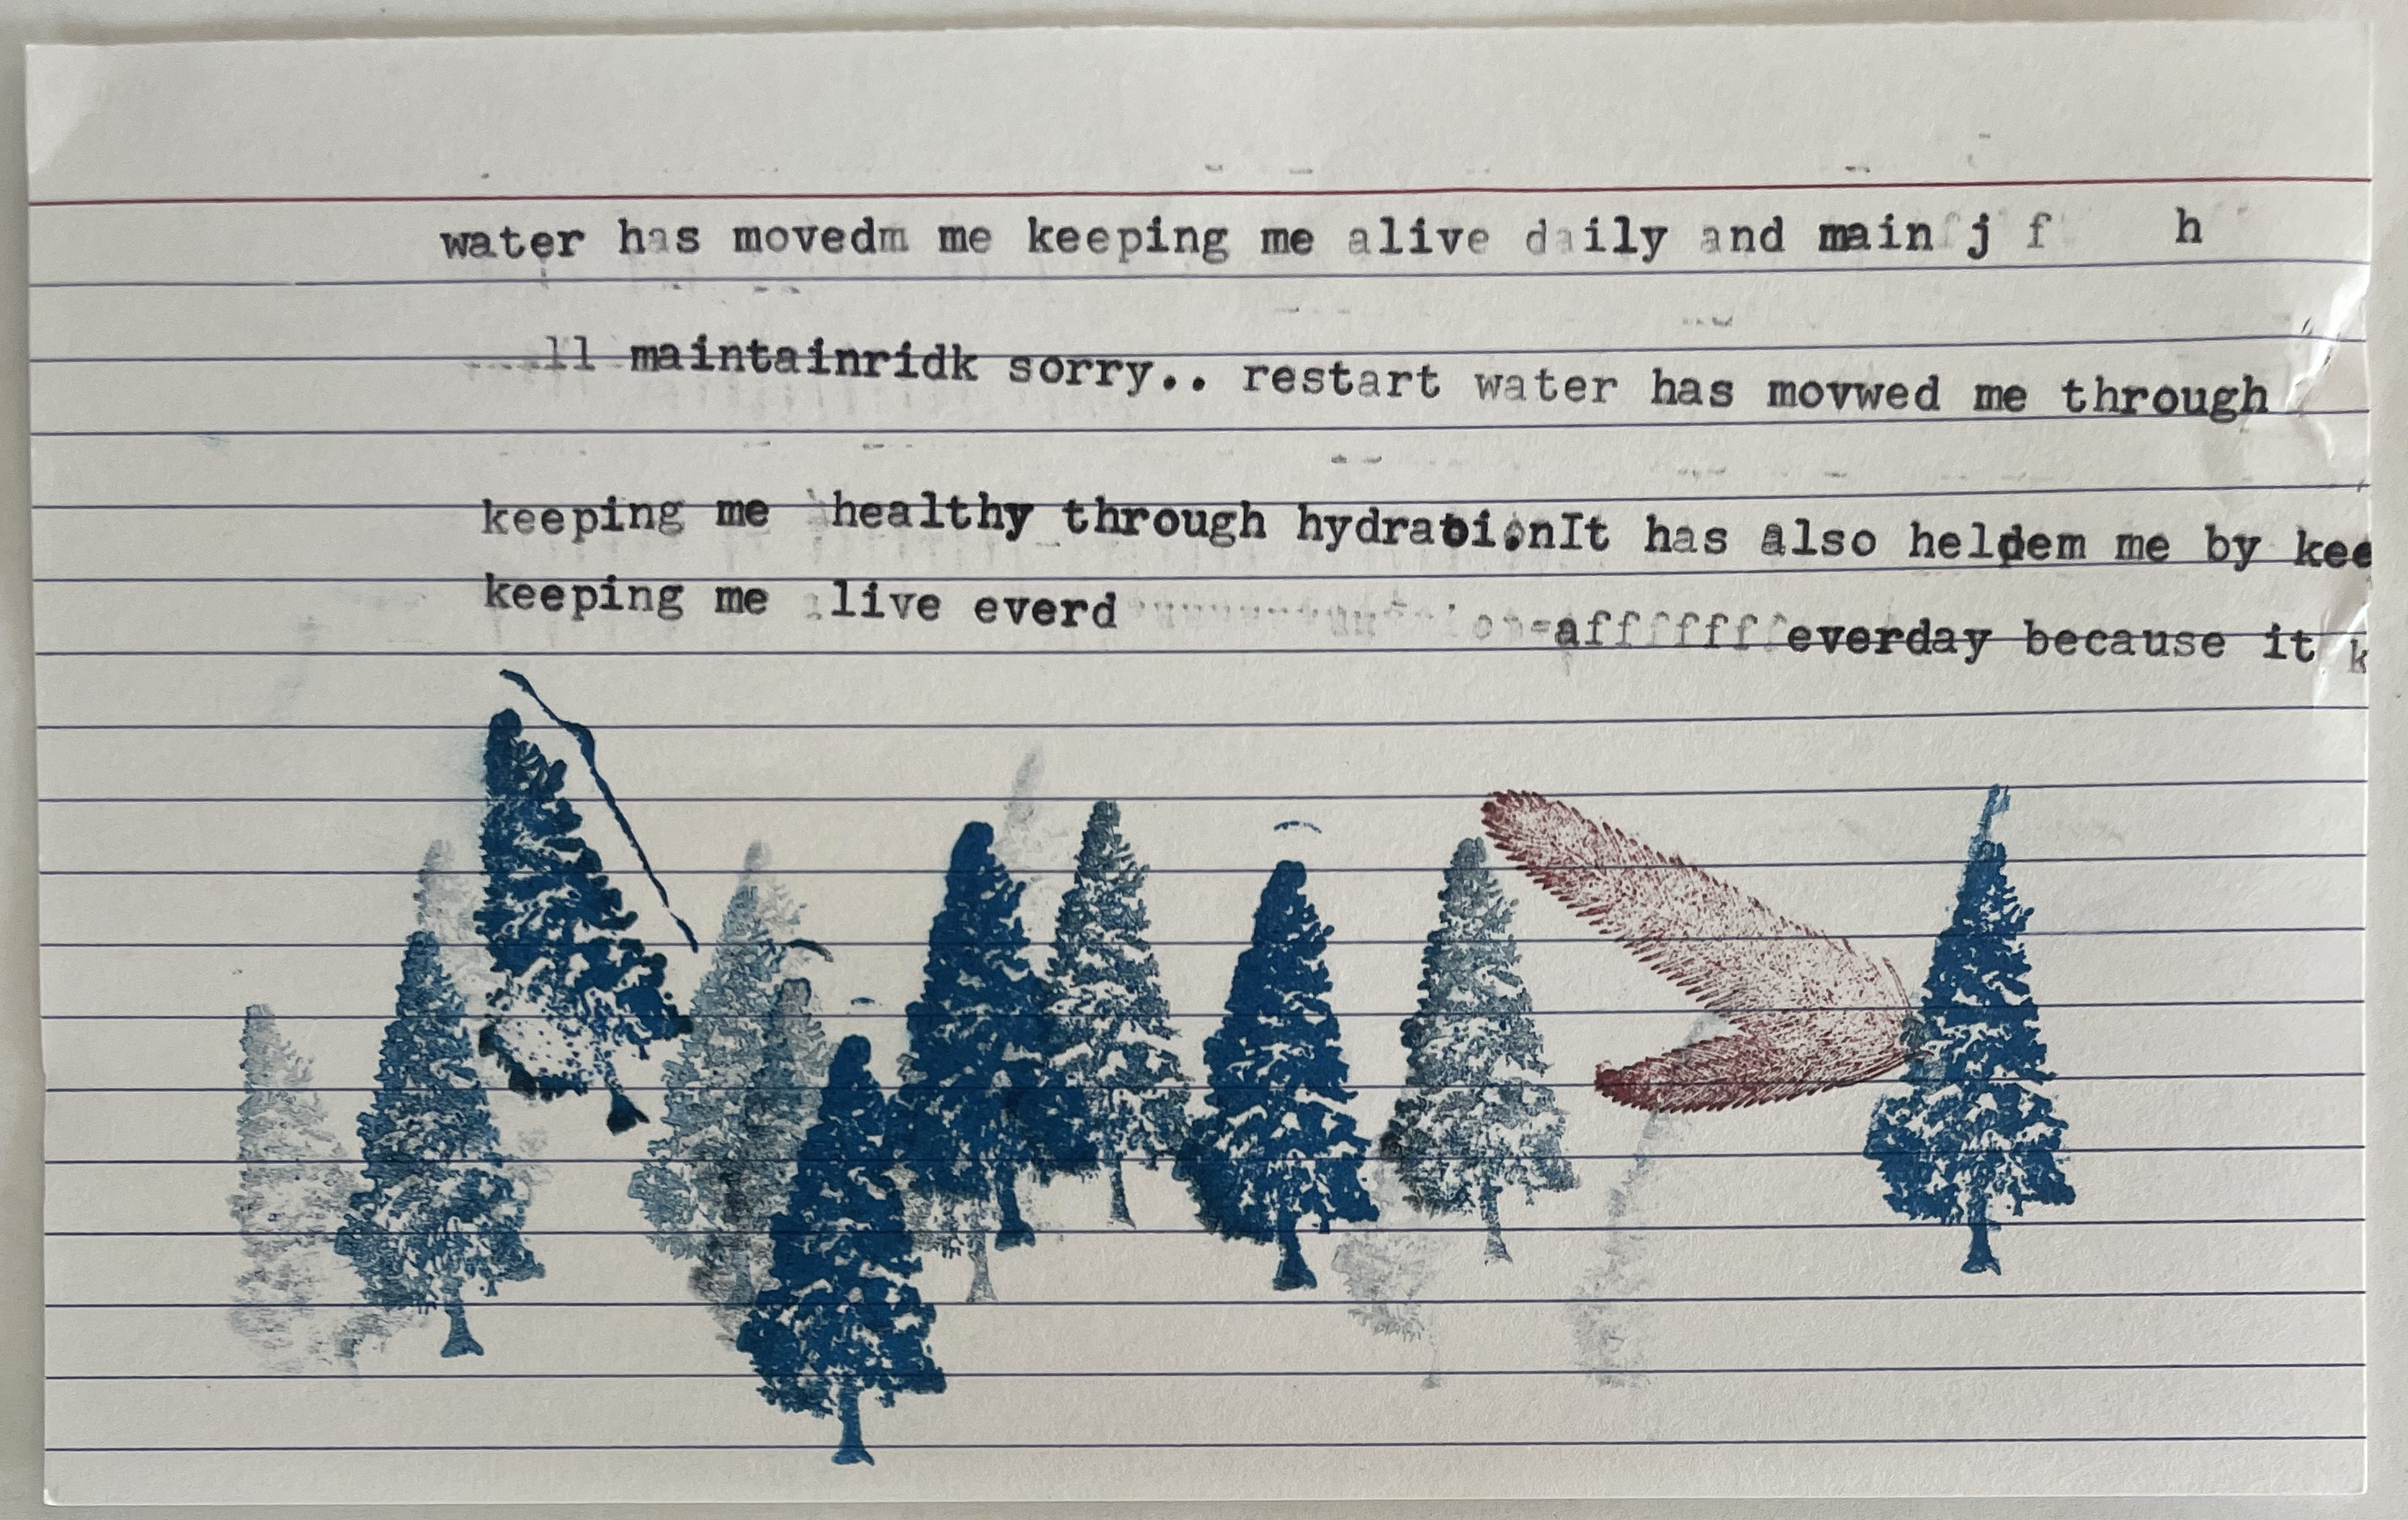 water has movedm me keeping me alive daily and main j f h
ll maintainridk sorry.. restart water has movwed me through
keeping me healthy through hydraoionIt has also helpdem me by kee
keeping me live everd affffff everday because it k